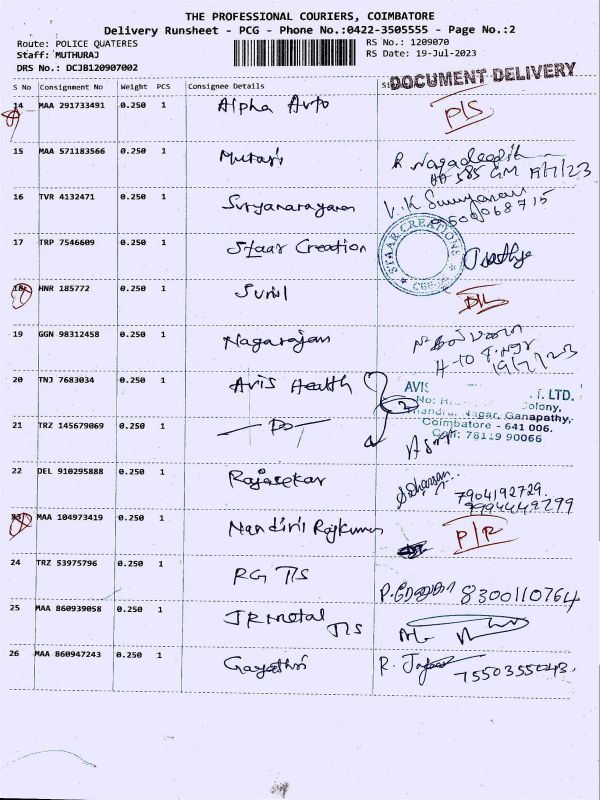 THE PROFESSIONAL COURIERS, COIMBATORE
Delivery Runsheet - PCG - Phone No.:0422-3505555 - Page No.:2
Route: POLICE QUATERES RS No.: 1209070
Staff: MUTHURAJ RS Date: 19-Jul-2023
DRS No.: DCJB120907002
DOCUMENT DELIVERY
S No Consignment No Weight PCS Consignee Details
14 MAA 291733491 0.250 1 Alpha Auto
15 MAA 571183566 0.250 1 Murari R Nagadeepik
16 TVR 4132471 0.250 1 Suryanarayanan V.K Suryanarayanan
17 TRP 7546609 0.250 1 Staar Creation STAAR CREATIONS
18 HNR 185772 0.250 1 Sunil D/L
19 GGN 98312458 0.250 1 Nagarajan
19/7/23
20 TNJ 7683034 0.250 1 Avis Health AVIS LTD.
No: Colony,
Nagar, Ganapathy,
Coimbatore - 641 006.
Cell: 78119 90066
21 TRZ 145679069 0.250 1 - Do - 2
22 DEL 910295888 0.250 1 Rajasekar
7904192729
9994449299
23 MAA 104973419 0.250 1 Nandini Rajkumar P/R
24 TRZ 53975796 0.250 1 RG T/S 8300110764
25 MAA 860939058 0.250 1 JR Metal T/S
26 MAA 860947243 0.250 1 Gayathri R.